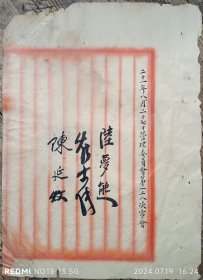 二十一年八月二十七日管理委員會第二一八次常會
陸夢熊
陳延炆
REDMI NOTE 13 5G
2024.07.19 16:24